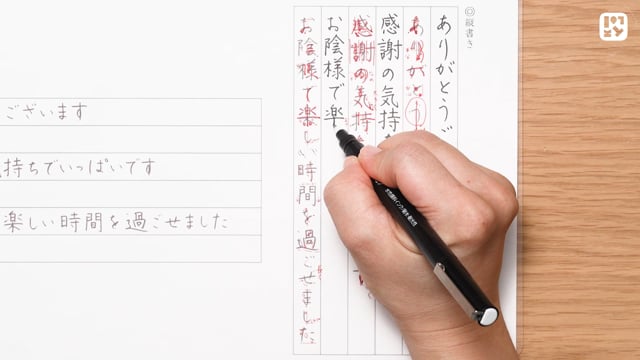 ◎縦書き
ありがとうご
ありがとう
感謝の気持
感謝の気持
お陰様で楽
お陰様で楽しい時間を過ごせました
ございます
持ちでいっぱいです
楽しい時間を過ごせました